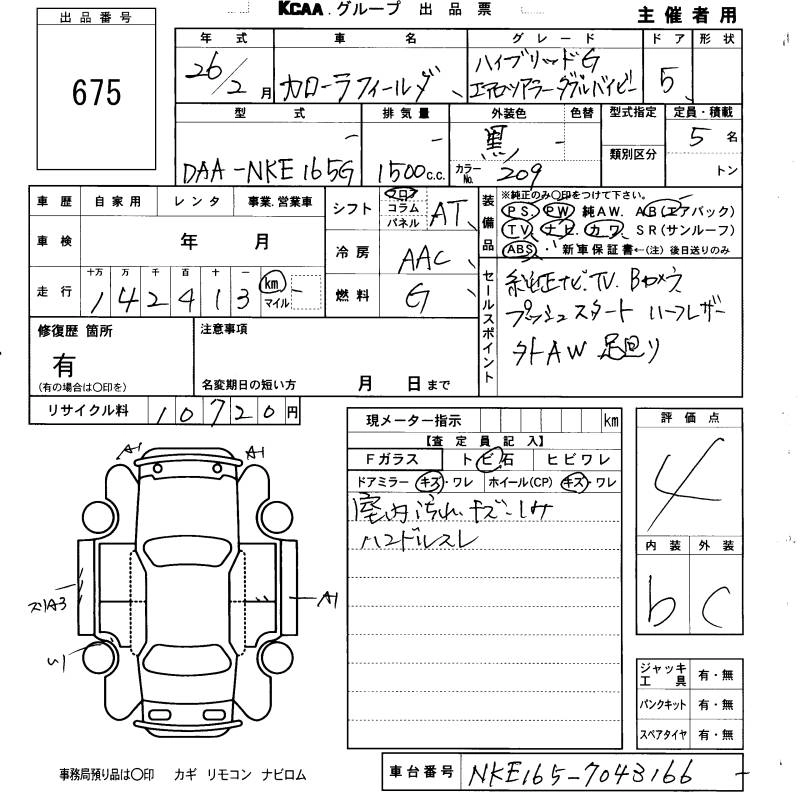 KCAA.グループ 出品票
主催者用
出品番号
675
年式 車名 グレード ドア 形状
26/2月 カローラフィールダ ハイブリッドG
エアロツアラーダブルバイビー 5
型式 排気量 外装色 色替 型式指定 定員・積載
DAA-NKE165G 1500c.c. 黒 カラーNo. 209 類別区分 5名
トン
車歴 自家用 レンタ 事業.営業車
車検 年 月
走行 十万 万 千 百 十 一
142413 km マイル
シフト フロ コラム パネル AT
冷房 AAC
燃料 G
装備品
※純正のみ○印をつけて下さい。
PS. PW 純AW. AB(エアバック)
TV ナビ. カワ. SR(サンルーフ)
ABS 新車保証書←(注)後日送りのみ
セールスポイント
純正ナビ.TV.Bカメラ
プッシュスタート ハーフレザー
外AW 足回り
修復歴 箇所
有
(有の場合は○印を)
注意事項
名変期日の短い方 月 日まで
リサイクル料 10720円
現メーター指示 km
【査定員記入】
Fガラス トビ石 ヒビワレ
ドアミラー キズ・ワレ ホイール(CP) キズ・ワレ
室内汚れ.キズ.シミ
ハンドルスレ
評価点
4
内装 外装
b C
A1 A1
A1
ジャッキ工具 有・無
パンクキット 有・無
スペアタイヤ 有・無
事務局預り品は○印 カギ リモコン ナビロム
車台番号 NKE165-7043166